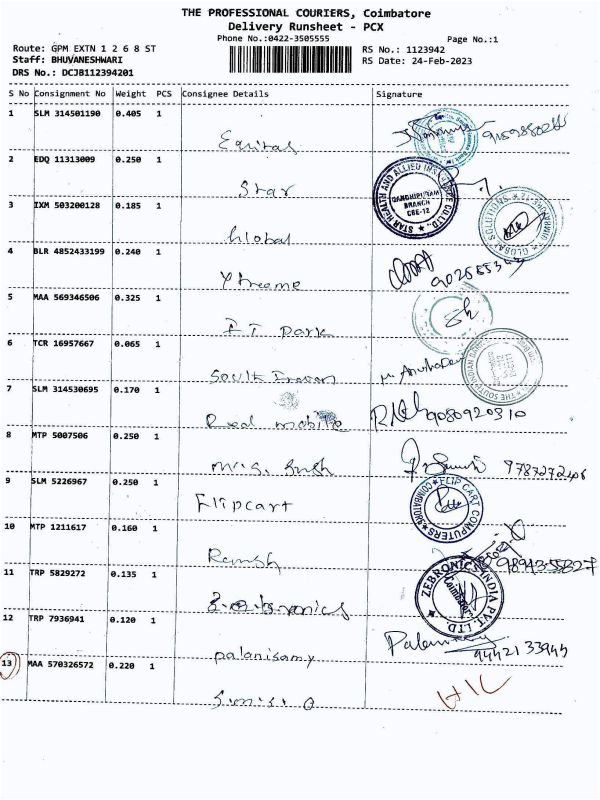 THE PROFESSIONAL COURIERS, Coimbatore
Delivery Runsheet - PCX
Phone No.:0422-3505555
Page No.:1
Route: GPM EXTN 1 2 6 8 ST
RS No.: 1123942
Staff: BHUVANESHWARI
RS Date: 24-Feb-2023
DRS No.: DCJB112394201
S No Consignment No Weight PCS Consignee Details Signature
1 SLM 314501190 0.405 1
Equitas
2 EDQ 11313009 0.250 1
Star
STAR HEALTH AND ALLIED INSURANCE CO.LTD.
GANDHIPURAM
BRANCH
CBE-12
3 IXM 503200128 0.185 1
Global
GLOBAL SOLUTIONS
4 BLR 4852433199 0.240 1
Xtreme
5 MAA 569346506 0.325 1
IT Park
6 TCR 16957667 0.065 1
South Indian
THE SOUTH INDIAN BANK
7 SLM 314530695 0.170 1
Real mobile
9080920310
8 MTP 5007506 0.250 1
9787272406
9 SLM 5226967 0.250 1
Flipcart
FLIP CART COMPUTERS
COIMBATORE
10 MTP 1211617 0.160 1
Ramesh
9894355827
11 TRP 5829272 0.135 1
ZEBRONICS INDIA PVT. LTD
Coimbatore
12 TRP 7936941 0.120 1
palanisamy
Palanisamy
9442133945
13 MAA 570326572 0.220 1